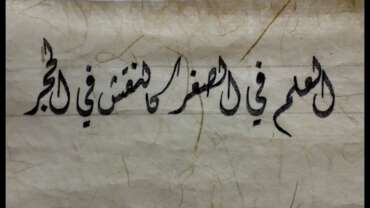 العلم في الصغر كالنقش في الحجر